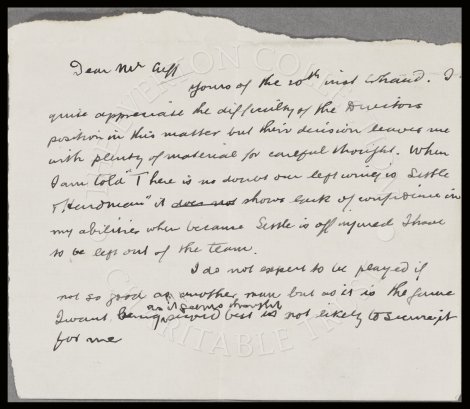 Dear Mr Cuff
Yours of the 20th inst to hand. I
quite appreciate the difficulty of the Directors
position in this matter but their decision leaves me
with plenty of material for careful thought. When
I am told "There is no doubt our left wing is Settle
& Hardman" it does not shows lack of confidence in
my abilities when because Settle is off injured I have
to be left out of the team.
I do not expect to be played if
not so good as another man but as it is the game
as it seems
I want being played but is not likely to secure it
for me